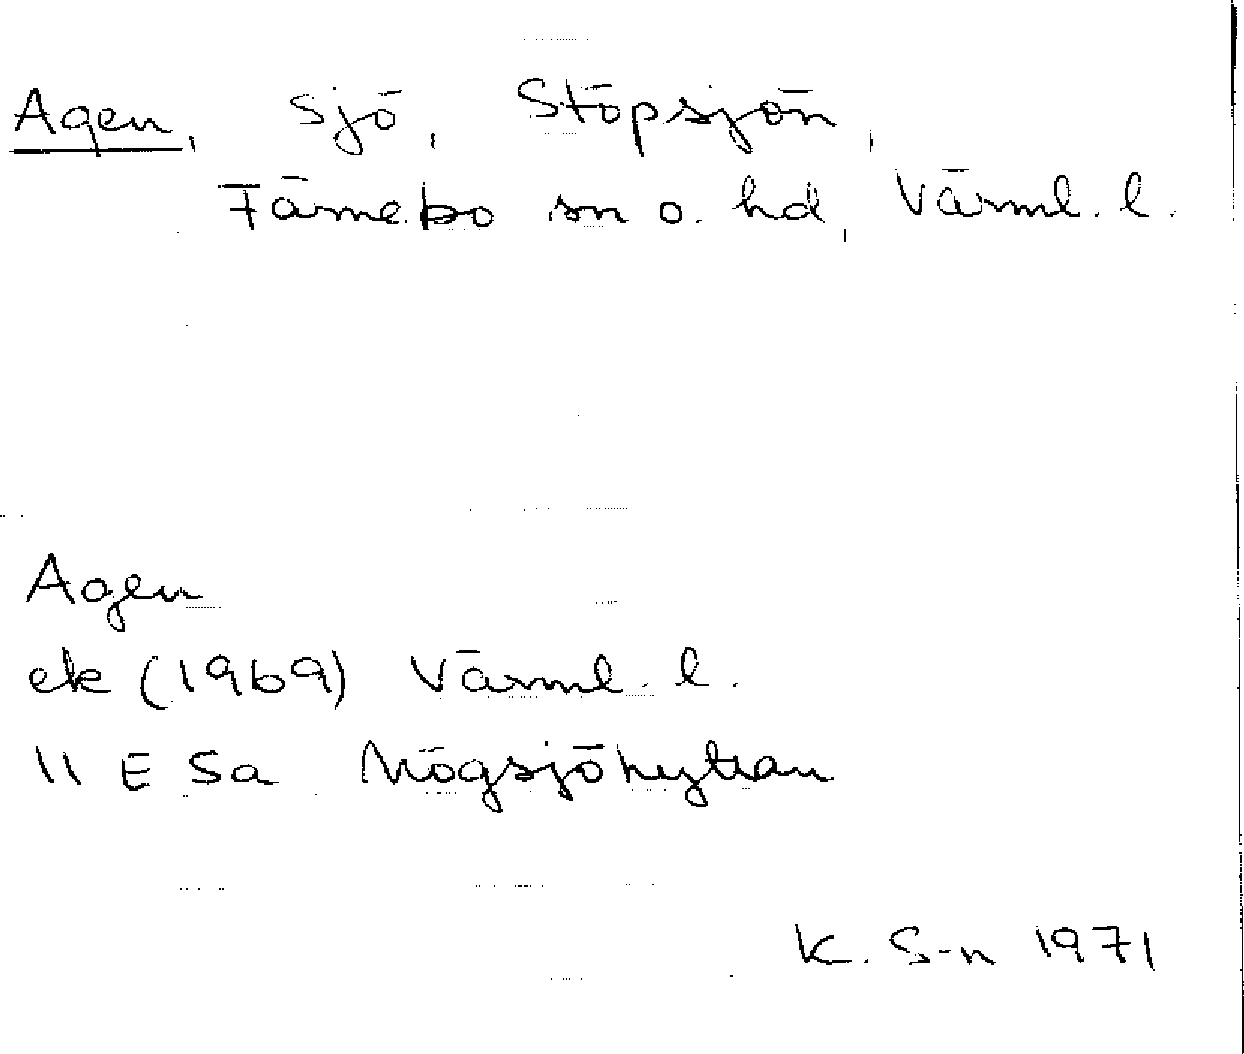 Agen, sjö, Stöpsjön,
Färnebo sn o. hd, Värml. l.
Agen
ek (1969) Värml. l.
11 E 5a Mögsjöhyttan
K. S-n 1971